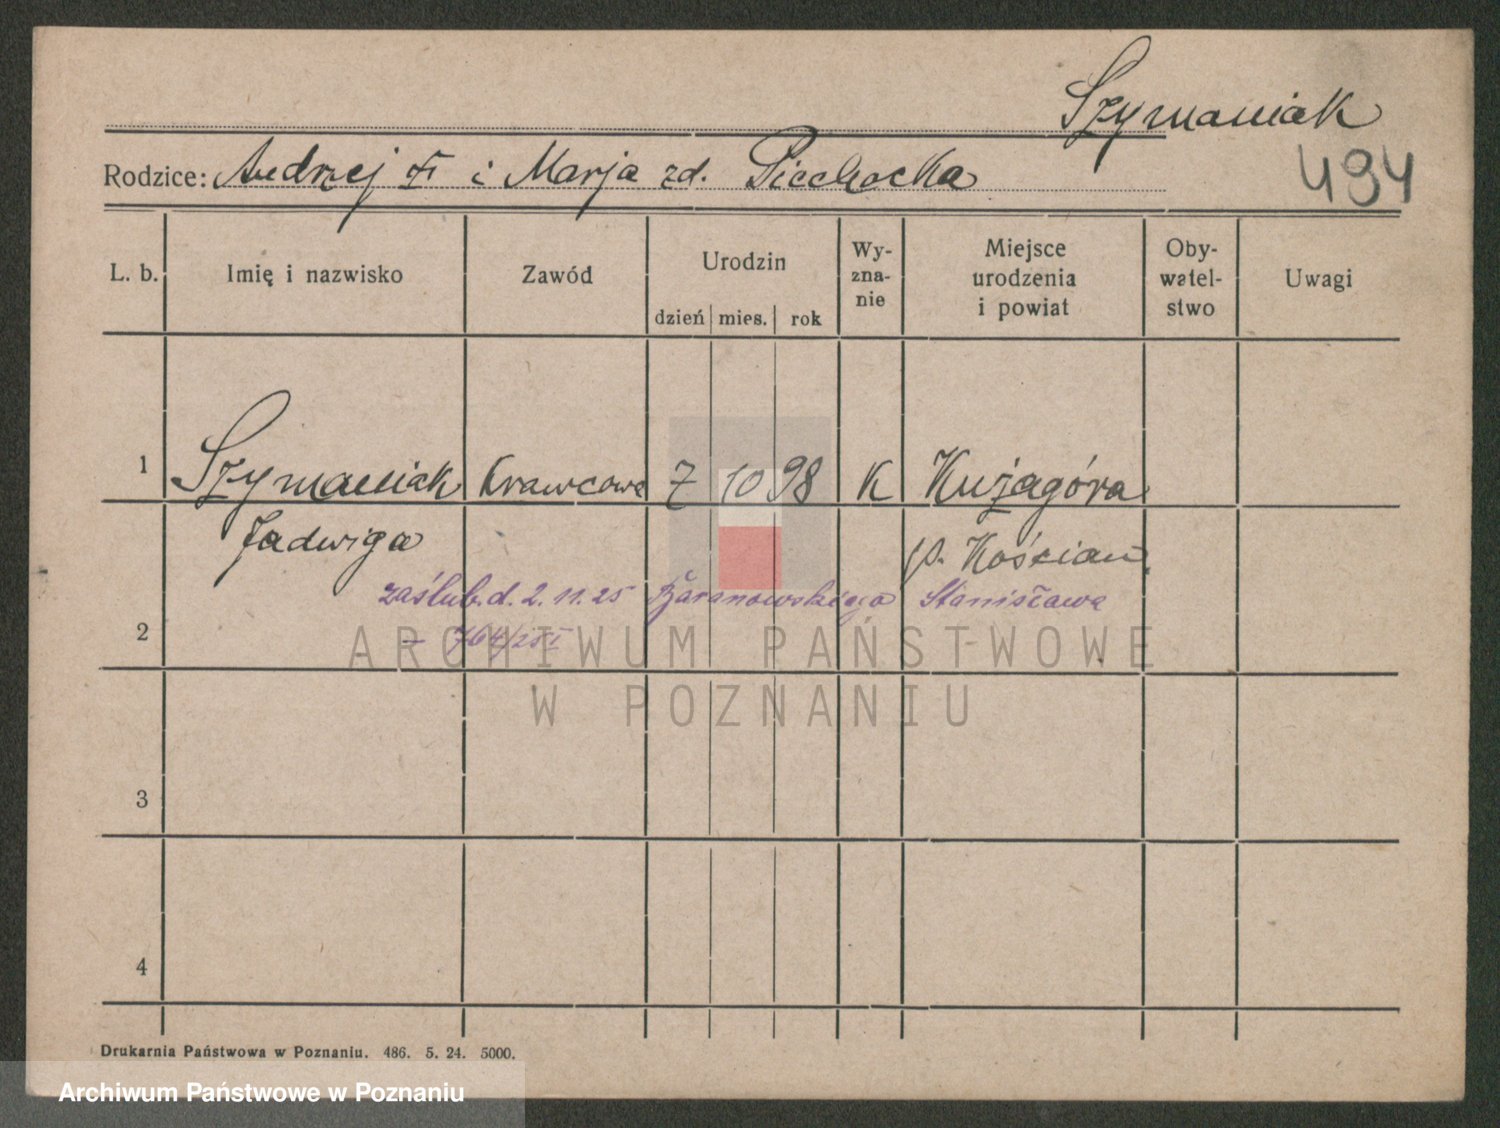 Szymaniak
494
Rodzice: Andrzej i Marja zd. Piechocka
L. b. Imię i nazwisko Zawód Urodzin dzień mies. rok Wy-zna-nie Miejsce urodzenia i powiat Oby-watel-stwo Uwagi
1 Szymaniak Krawcowa 7 10 98 K Kużagóra
Jadwiga p. Kościan
zaślub. d. 2.11.25 Baranowskiego Stanisława
2 – 764/25 I
ARCHIWUM PAŃSTWOWE
W POZNANIU
3
4
Drukarnia Państwowa w Poznaniu. 486. 5. 24. 5000.
Archiwum Państwowe w Poznaniu